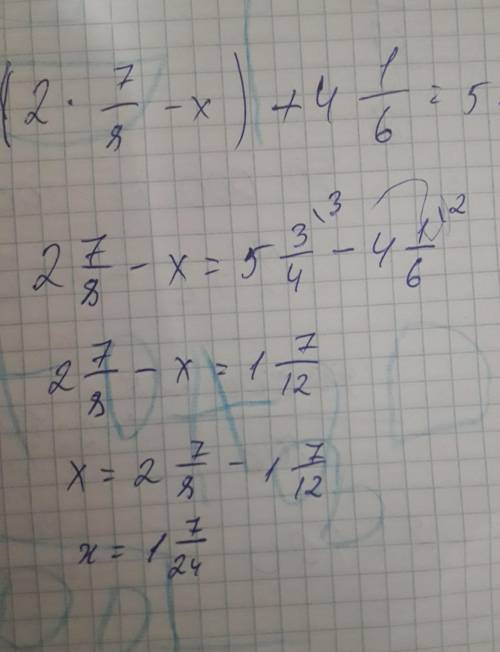 (2 · 7/8 - x) + 4 1/6 = 5
2 7/8 - x = 5 3/4 \3 - 4 1/6 \2
2 7/8 - x = 1 7/12
x = 2 7/8 - 1 7/12
x = 1 7/24